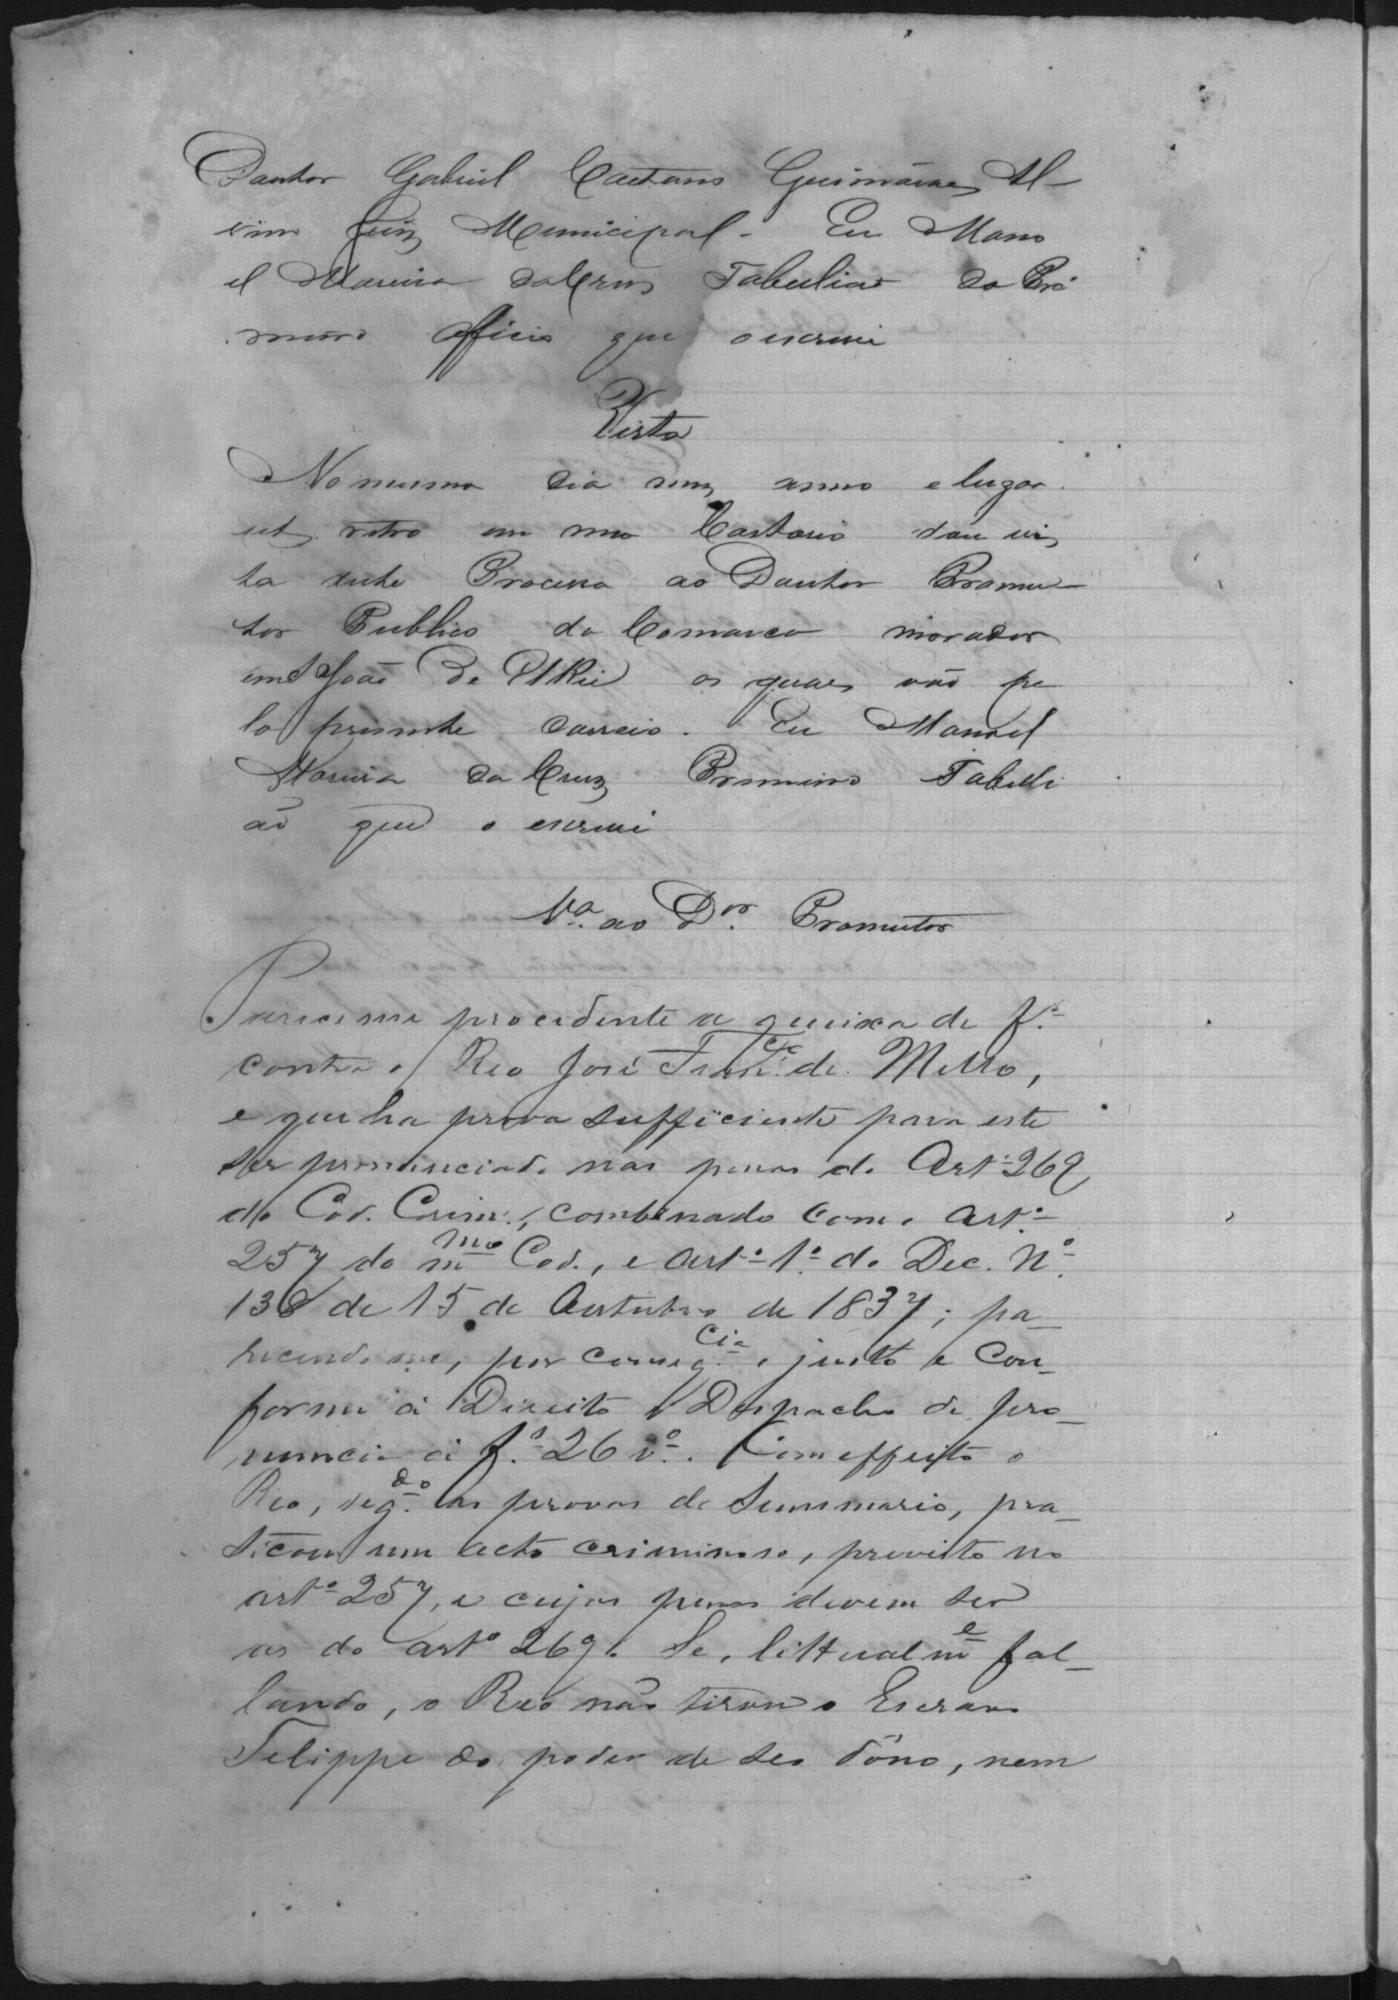 Doutor Gabriel Caetano Guimarães Al-
vim Juiz Municipal. Eu Mano
el Moreira da Cruz Tabeliaõ do Pri
meiro officio que o escrevi
Vista
No mesmo dia mez anno e lugar
ut retro em meo Cartorio dou vis
ta deste Processo ao Doutor Promu-
tor Publico da Comarca morador
em S João De El Rei os quaes vão pe
lo prezente correio. Eu Manoel
Moreira da Cruz Primeiro Tabeli
aõ que o escrevi
Va. ao Dor. Promutor
Parece-me procedente a queixa de f.s
contra o Reo José Franco. de Mello,
e que ha prova sufficiente para este
ser pronunciado nas penas do Arto. 269
do Cod. Crim., combinado com o arto.
257 do mmo Cod., e arto. 1o. do Dec. No.
138 de 15 de Outubro de 1837; pa-
recendo-me, por conseqcia., justo e con-
forme á Direito o Despacho de pro-
nuncia á fo. 26 vo. Com effeito o
Reo, segdo. as provas do Summario, pra-
ticou um acto criminoso, previsto no
arto. 257, e cujas penas devem ser
as do arto. 269. Se, litteralme fal-
lando, o Reo não tirou o Escravo
Felippe do poder de seo dôno, nem